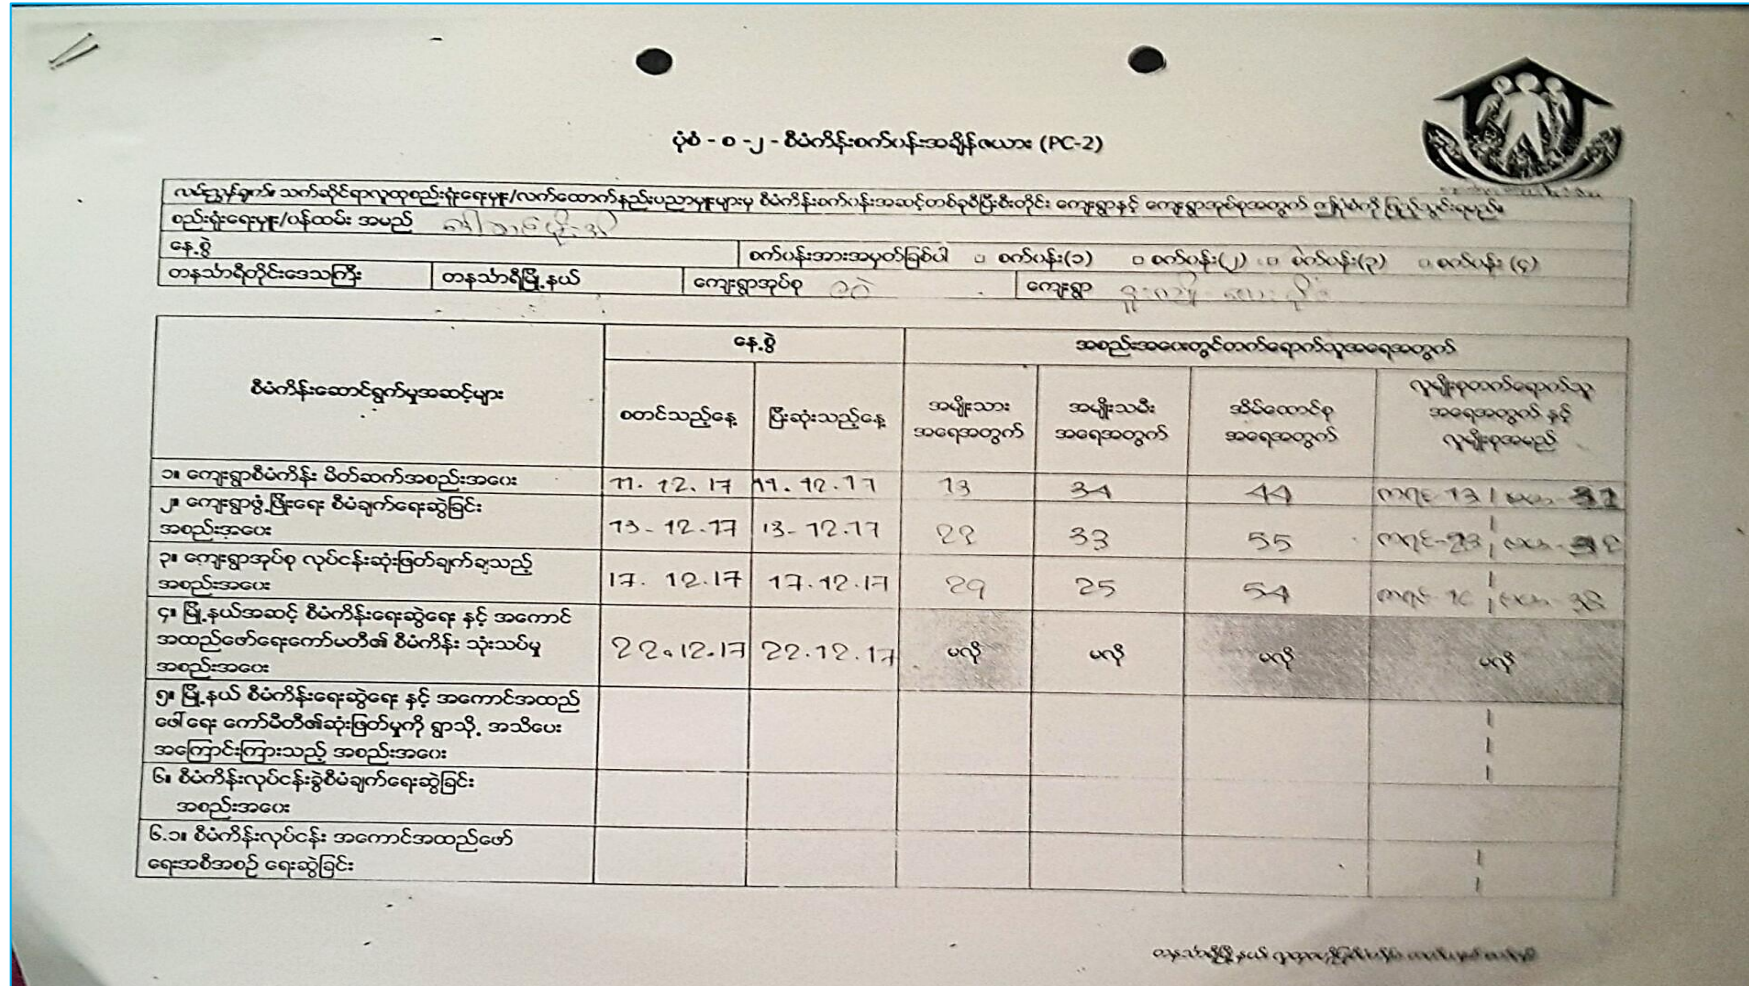 ပုံစံ - စ -၂ - စီမံကိန်းစက်ဝန်းအချိန်ဇယား (PC-2)
လမ်းညွှန်ချက်။ သက်ဆိုင်ရာလူထုစည်းရုံးရေးမှူး/လက်ထောက်နည်းပညာမှူးများမှ စီမံကိန်းစက်ဝန်းအဆင့်တစ်ခုစီပြီးစီးတိုင်း ကျေးရွာနှင့် ကျေးရွာအုပ်စုအတွက် ဤပုံစံကို ဖြည့်သွင်းရမည်။
စည်းရုံးရေးမှူး/ဝန်ထမ်း အမည်
နေ့စွဲ စက်ဝန်းအားအမှတ်ခြစ်ပါ □ စက်ဝန်း(၁) □ စက်ဝန်း(၂) □ စက်ဝန်း(၃) □ စက်ဝန်း (၄)
တနင်္သာရီတိုင်းဒေသကြီး တနင်္သာရီမြို့နယ် ကျေးရွာအုပ်စု ကျေးရွာ
စီမံကိန်းဆောင်ရွက်မှုအဆင့်များ
နေ့စွဲ
အစည်းအဝေးတွင်တက်ရောက်သူအရေအတွက်
စတင်သည့်နေ့
ပြီးဆုံးသည့်နေ့
အမျိုးသား
အရေအတွက်
အမျိုးသမီး
အရေအတွက်
အိမ်ထောင်စု
အရေအတွက်
လူမျိုးစုတက်ရောက်သူ
အရေအတွက် နှင့်
လူမျိုးစုအမည်
၁။ ကျေးရွာစီမံကိန်း မိတ်ဆက်အစည်းအဝေး 11. 12. 17 11. 12. 17 13 34 44
၂။ ကျေးရွာဖွံ့ဖြိုးရေး စီမံချက်ရေးဆွဲခြင်း
အစည်းအဝေး 13- 12.17 13- 12.17 33 55
၃။ ကျေးရွာအုပ်စု လုပ်ငန်းဆုံးဖြတ်ချက်ချသည့်
အစည်းအဝေး 17. 12.17 17.12.17 29 25 54
၄။ မြို့နယ်အဆင့် စီမံကိန်းရေးဆွဲရေး နှင့် အကောင်
အထည်ဖော်ရေးကော်မတီ၏ စီမံကိန်း သုံးသပ်မှု
အစည်းအဝေး 22.12.17 22.12.17 မလို မလို မလို မလို
၅။ မြို့နယ် စီမံကိန်းရေးဆွဲရေး နှင့် အကောင်အထည်
ဖေါ်ရေး ကော်မီတီ၏ဆုံးဖြတ်မှုကို ရွာသို့ အသိပေး
အကြောင်းကြားသည့် အစည်းအဝေး
၆။ စီမံကိန်းလုပ်ငန်းခွဲစီမံချက်ရေးဆွဲခြင်း
အစည်းအဝေး
၆.၁။ စီမံကိန်းလုပ်ငန်း အကောင်အထည်ဖော်
ရေးအစီအစဉ် ရေးဆွဲခြင်း